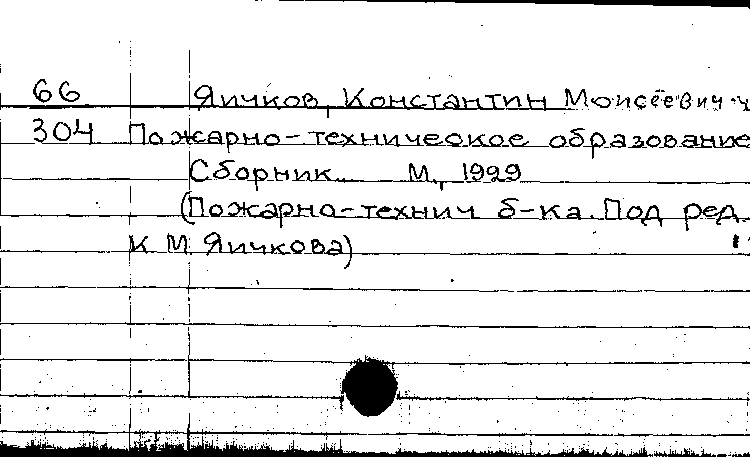 66 Яичков, Константин Моисеевич
304 Пожарно-техническое образование
Сборник. М., 1929
(Пожарно-технич б-ка. Под ред.
К М Яичкова)